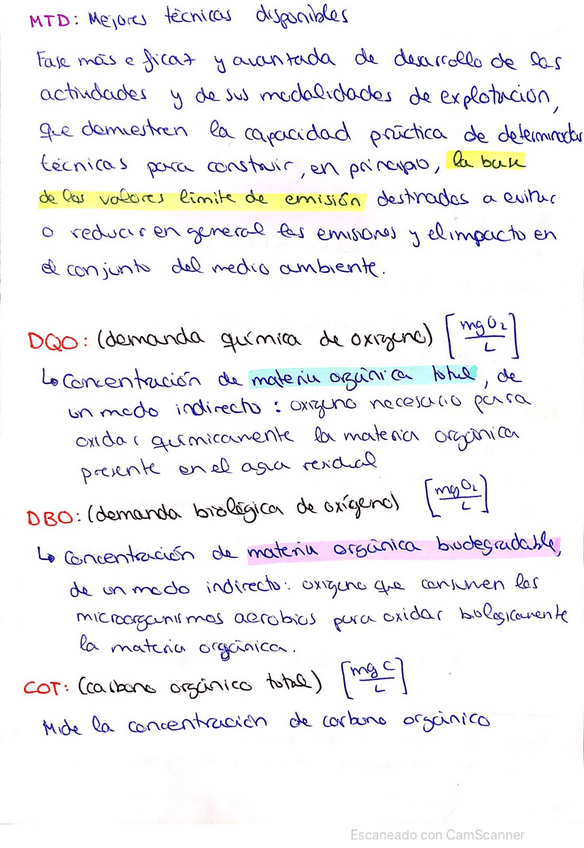 MTD: Mejores técnicas disponibles
Fase más eficaz y avanzada de desarrollo de las
actividades y de sus modalidades de explotación,
que demuestren la capacidad práctica de determinadas
técnicas para construir, en principio, la base
de los valores límite de emisión destinados a evitar
o reducir en general las emisiones y el impacto en
el conjunto del medio ambiente.
DQO: (demanda química de oxígeno) [mgO2/L]
↳ Concentración de materia orgánica total, de
un modo indirecto: oxígeno necesario para
oxidar químicamente la materia orgánica
presente en el agua residual
DBO: (demanda biológica de oxígeno) [mgO2/L]
↳ Concentración de materia orgánica biodegradable,
de un modo indirecto: oxígeno que consumen los
microorganismos aerobios para oxidar biologicamente
la materia orgánica.
COT: (carbono orgánico total) [mg C/L]
Mide la concentración de carbono orgánico
Escaneado con CamScanner